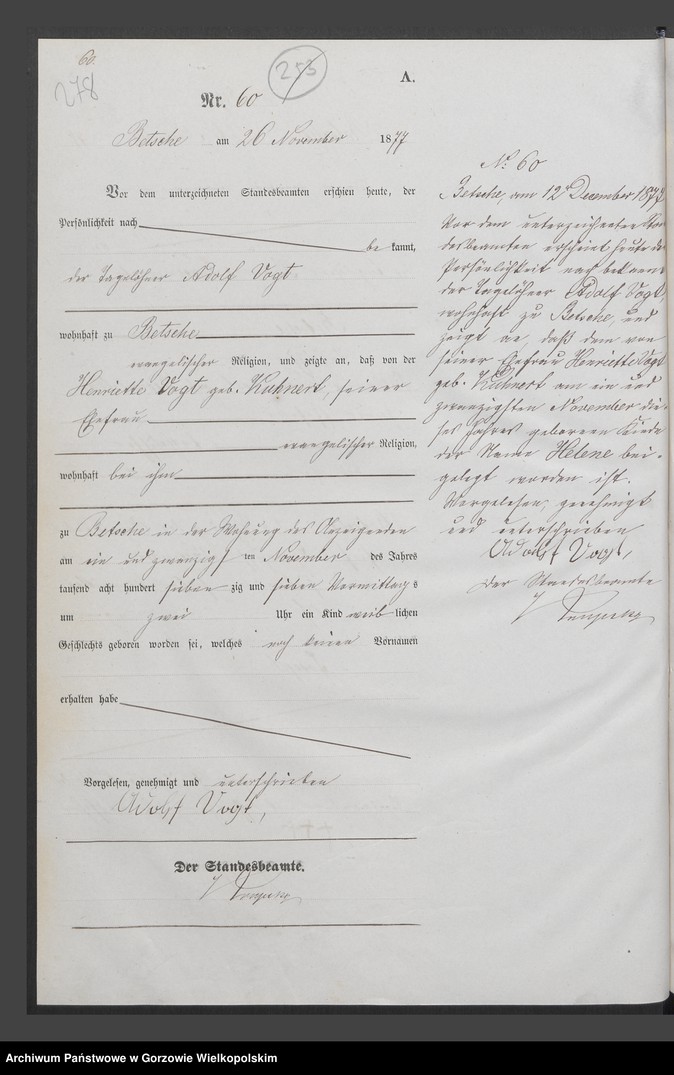 60.
278
253
A.
Nr. 60
Betsche am 26 November 1877
Vor dem unterzeichneten Standesbeamten erschien heute, der
Persönlichkeit nach
be kannt,
der Tagelöhner Adolf Vogt
wohnhaft zu Betsche
evangelischer Religion, und zeigte an, daß von der
Henriette Vogt geb. Kuhnert, seiner
Ehefrau
evangelischer Religion,
wohnhaft bei ihm
zu Betsche in der Wohnung des Anzeigenden
am ein und zwanzig ten November des Jahres
tausend acht hundert sieben zig und sieben Vormittags
um zwei Uhr ein Kind weib lichen
Geschlechts geboren worden sei, welches noch keinen Vornamen
erhalten habe
Vorgelesen, genehmigt und unterschrieben
Adolf Vogt,
Der Standesbeamte.
No 60
Betsche, am 12 Dezember 1877
Vor dem unterzeichneten Stan
desbeamten erscheint heute der
Persönlichkeit nach bekannt
der Tagelöhner Adolf Vogt,
wohnhaft zu Betsche, und
zeigt an, daß dem von
seiner Ehefrau Henriette Vogt
geb. Kuhnert am ein und
zwanzigsten November die-
ses Jahres geborenen Kinde
der Name Helene bei-
gelegt worden ist.
Vorgelesen, genehmigt
und unterschrieben
Adolf Vogt,
Der Standesbeamte
Archiwum Państwowe w Gorzowie Wielkopolskim